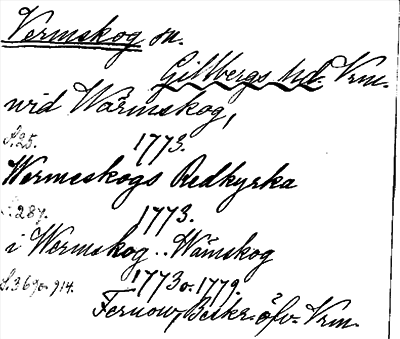 Vermskog sn.
Gillbergs hd. Vrm.
wid Wärmskog,
S.25. 1773.
Wermeskogs Redkyrka
S.287. 1773.
i Wermskog .. Wämskog
S.369o.914. 1773 o. 1779.
Fernow, Beskr. öfv. Vrm.